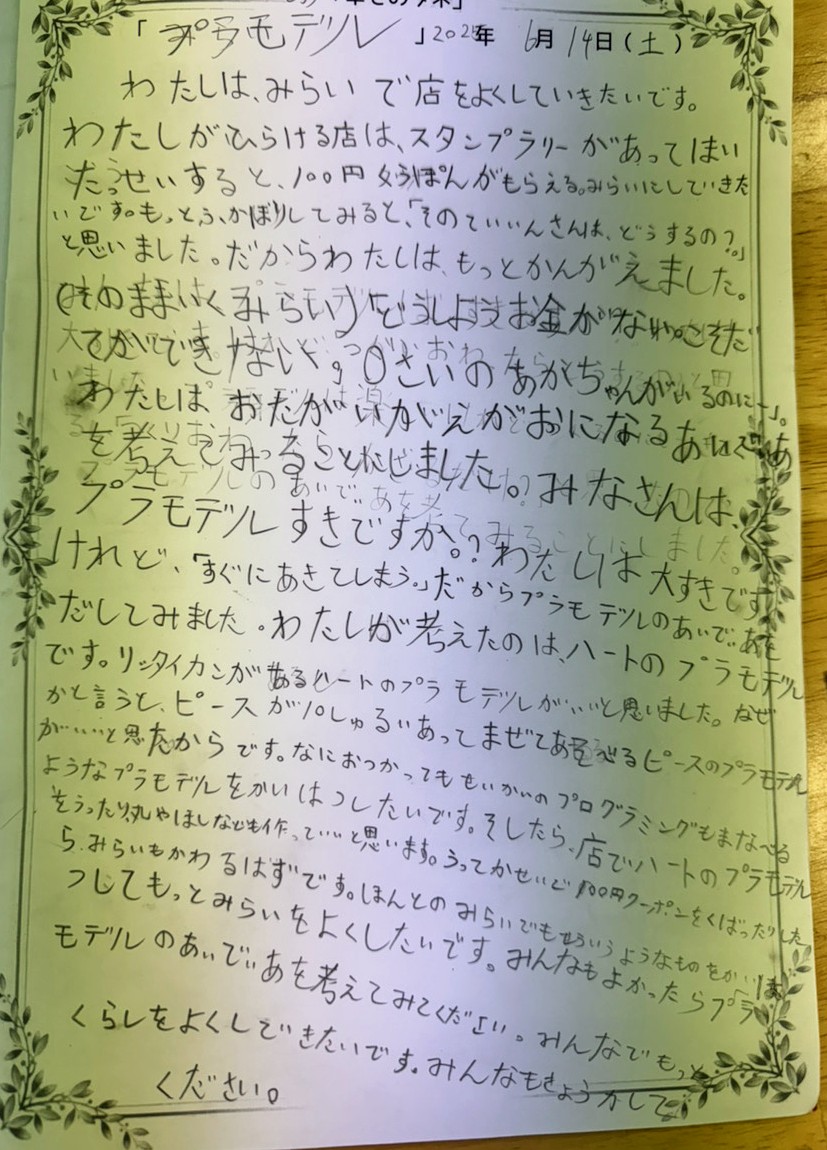 「プラモデル」2025年 6月14日(土)
わたしは、みらいで店をよくしていきたいです。
わたしがひらける店は、スタンプラリーがあってはい
たっせいすると、100円くうぽんがもらえる。みらいにしていきた
いです。もっとふかぼりしてみると、「そのていいんさんは、どうするの?」
と思いました。だからわたしは、もっとかんがえました。
(そのままいくみらい)「どうしようお金がない。こそだ
てができない。0さいのあかちゃんがいるのに〜」。
わたしは、おたがいがえがおになるあいでぃあ
を考えてみることにしました。みなさんは、
プラモデルすきですか。?わたしは大すきです
けれど、「すぐにあきてしまう。」だからプラモデルのあいでぃあを
だしてみました。わたしが考えたのは、ハートのプラモデル
です。リッタイカンがあるハートのプラモデルがいいと思いました。なぜ
かと言うと、ピースが10しゅるいあってまぜてあそべるピースのプラモデル
がいいと思たからです。なにおつかってもせいかいのプログラミングもまなべる
ようなプラモデルをかいはつしたいです。そしたら、店でハートのプラモデル
をうったり丸やほしなども作っていいと思います。うってかせいで100円クーポンをくばったりした
ら、みらいもかわるはずです。ほんとのみらいでもそういうようなものをかいは
つしてもっとみらいをよくしたいです。みんなもよかったらプラ
モデルのあいでぃあを考えてみてください。みんなでもっと
くらしをよくしできたいです。みんなもきょうかして
ください。